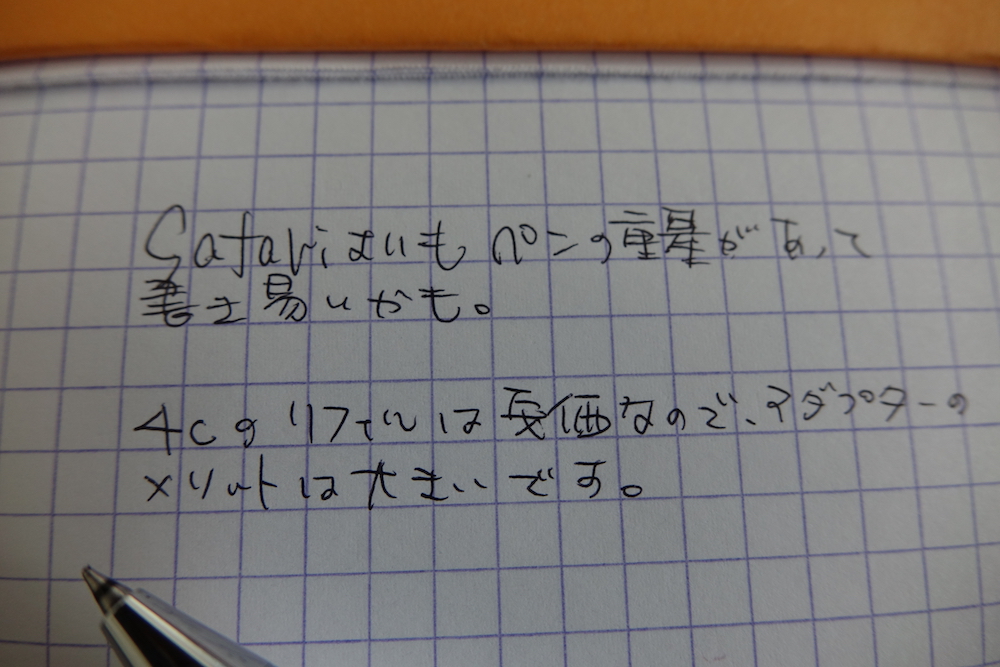 Safariよりもペンの重量があって
書き易いかも。
4cのリフィルは安価なので、アダプターの
メリットは大きいです。